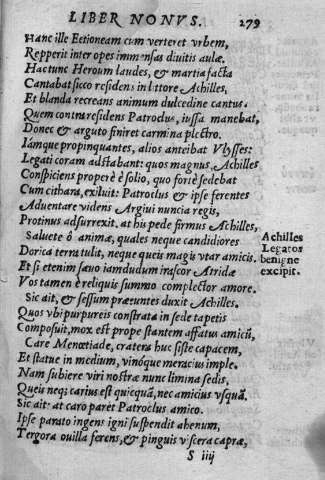 LIBER NONVS. 279
Hanc ille Eetioneam cum verteret vrbem,
Repperit inter opes immensas diuitis aulæ.
Hac tunc Heroum laudes, & martia facta
Cantabat sicco residens in littore Achilles,
Et blanda recreans animum dulcedine cantus.
Quem contra residens Patroclus, iussa manebat,
Donec & arguto finiret carmina plectro.
Iámque propinquantes, alios anteibat Vlysses:
Legati coram adstabant: quos magnus Achilles
Conspiciens properè è solio, quo fortè sedebat
Cum cithara, exiluit: Patroclus & ipse ferentes
Aduentare videns Argiui nuncia regis,
Protinus adsurrexit. at his pede firmus Achilles,
Saluete ô animæ, quales neque candidiores
Dorica terra tulit, neque queis magis vtar amicis.
Et si etenim sæuo iamdudum irascor Atridæ
Vos tamen è reliquis summo complector amore.
Sic ait, & sessum præeuntes duxit Achilles.
Quos vbi purpureis constrata in sede tapetis
Composuit, mox est prope stantem affatus amicũ,
Care Menœtiade, cratera huc siste capacem,
Et statue in medium, vinóque meracius imple.
Nam subiere viri nostræ nunc limina sedis,
Queis neq; carius est quicquã, nec amicius vsquã.
Sic ait. at caro paret Patroclus amico.
Ipse parato ingens igni suspendit ahenum,
Tergora ouilla ferens, & pinguis viscera capræ,
S iiij
Achilles
Legatos
benigne
excipit.